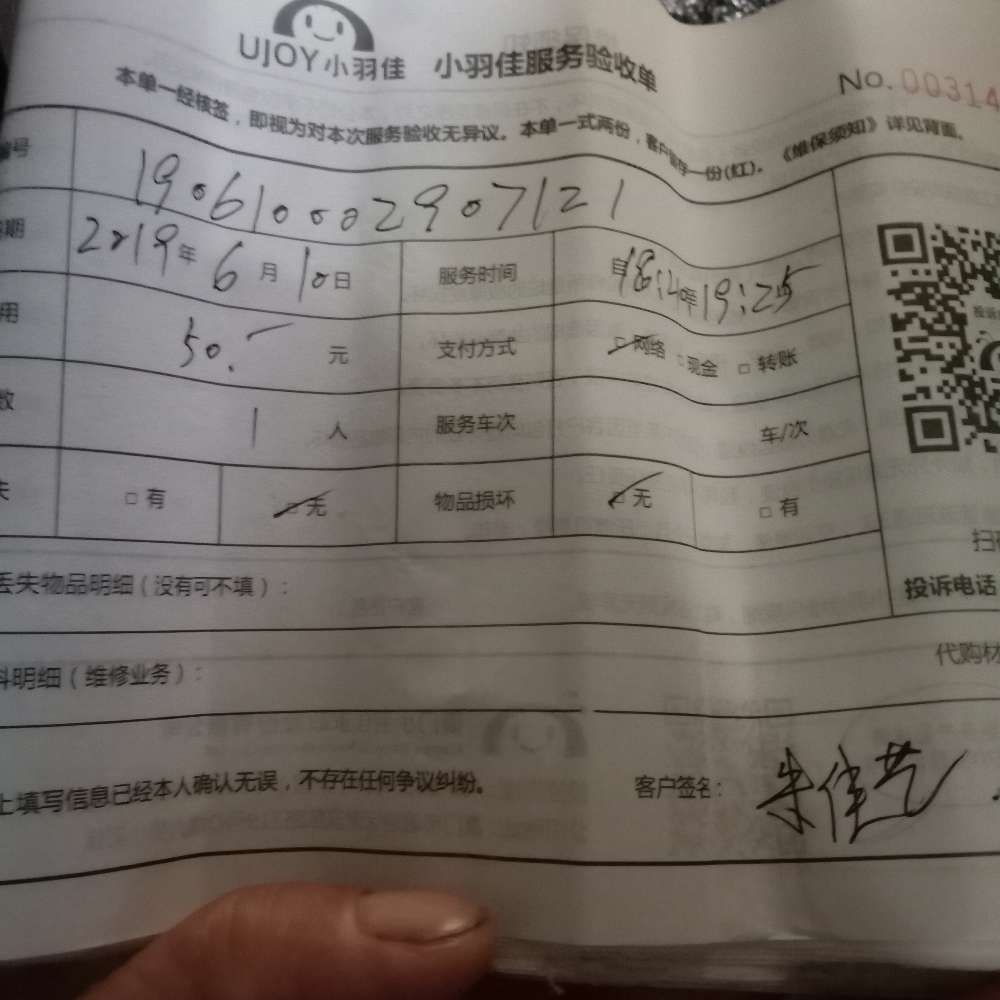 UJOY小羽佳 小羽佳服务验收单
No.00314
本单一经核签，即视为对本次服务验收无异议。本单一式两份，客户留存一份(红)。《维保须知》详见背面。
编号 190610002907121
期 2019年6月10日 服务时间 自18:40至19:25
用 50.- 元 支付方式 网络 □现金 □转账
数 1人 服务车次 车/次
失 □有 □无 物品损坏 □无 □有
丢失物品明细（没有可不填）：
投诉电话
料明细（维修业务）： 代购材
上填写信息已经本人确认无误，不存在任何争议纠纷。 客户签名：朱佳艺